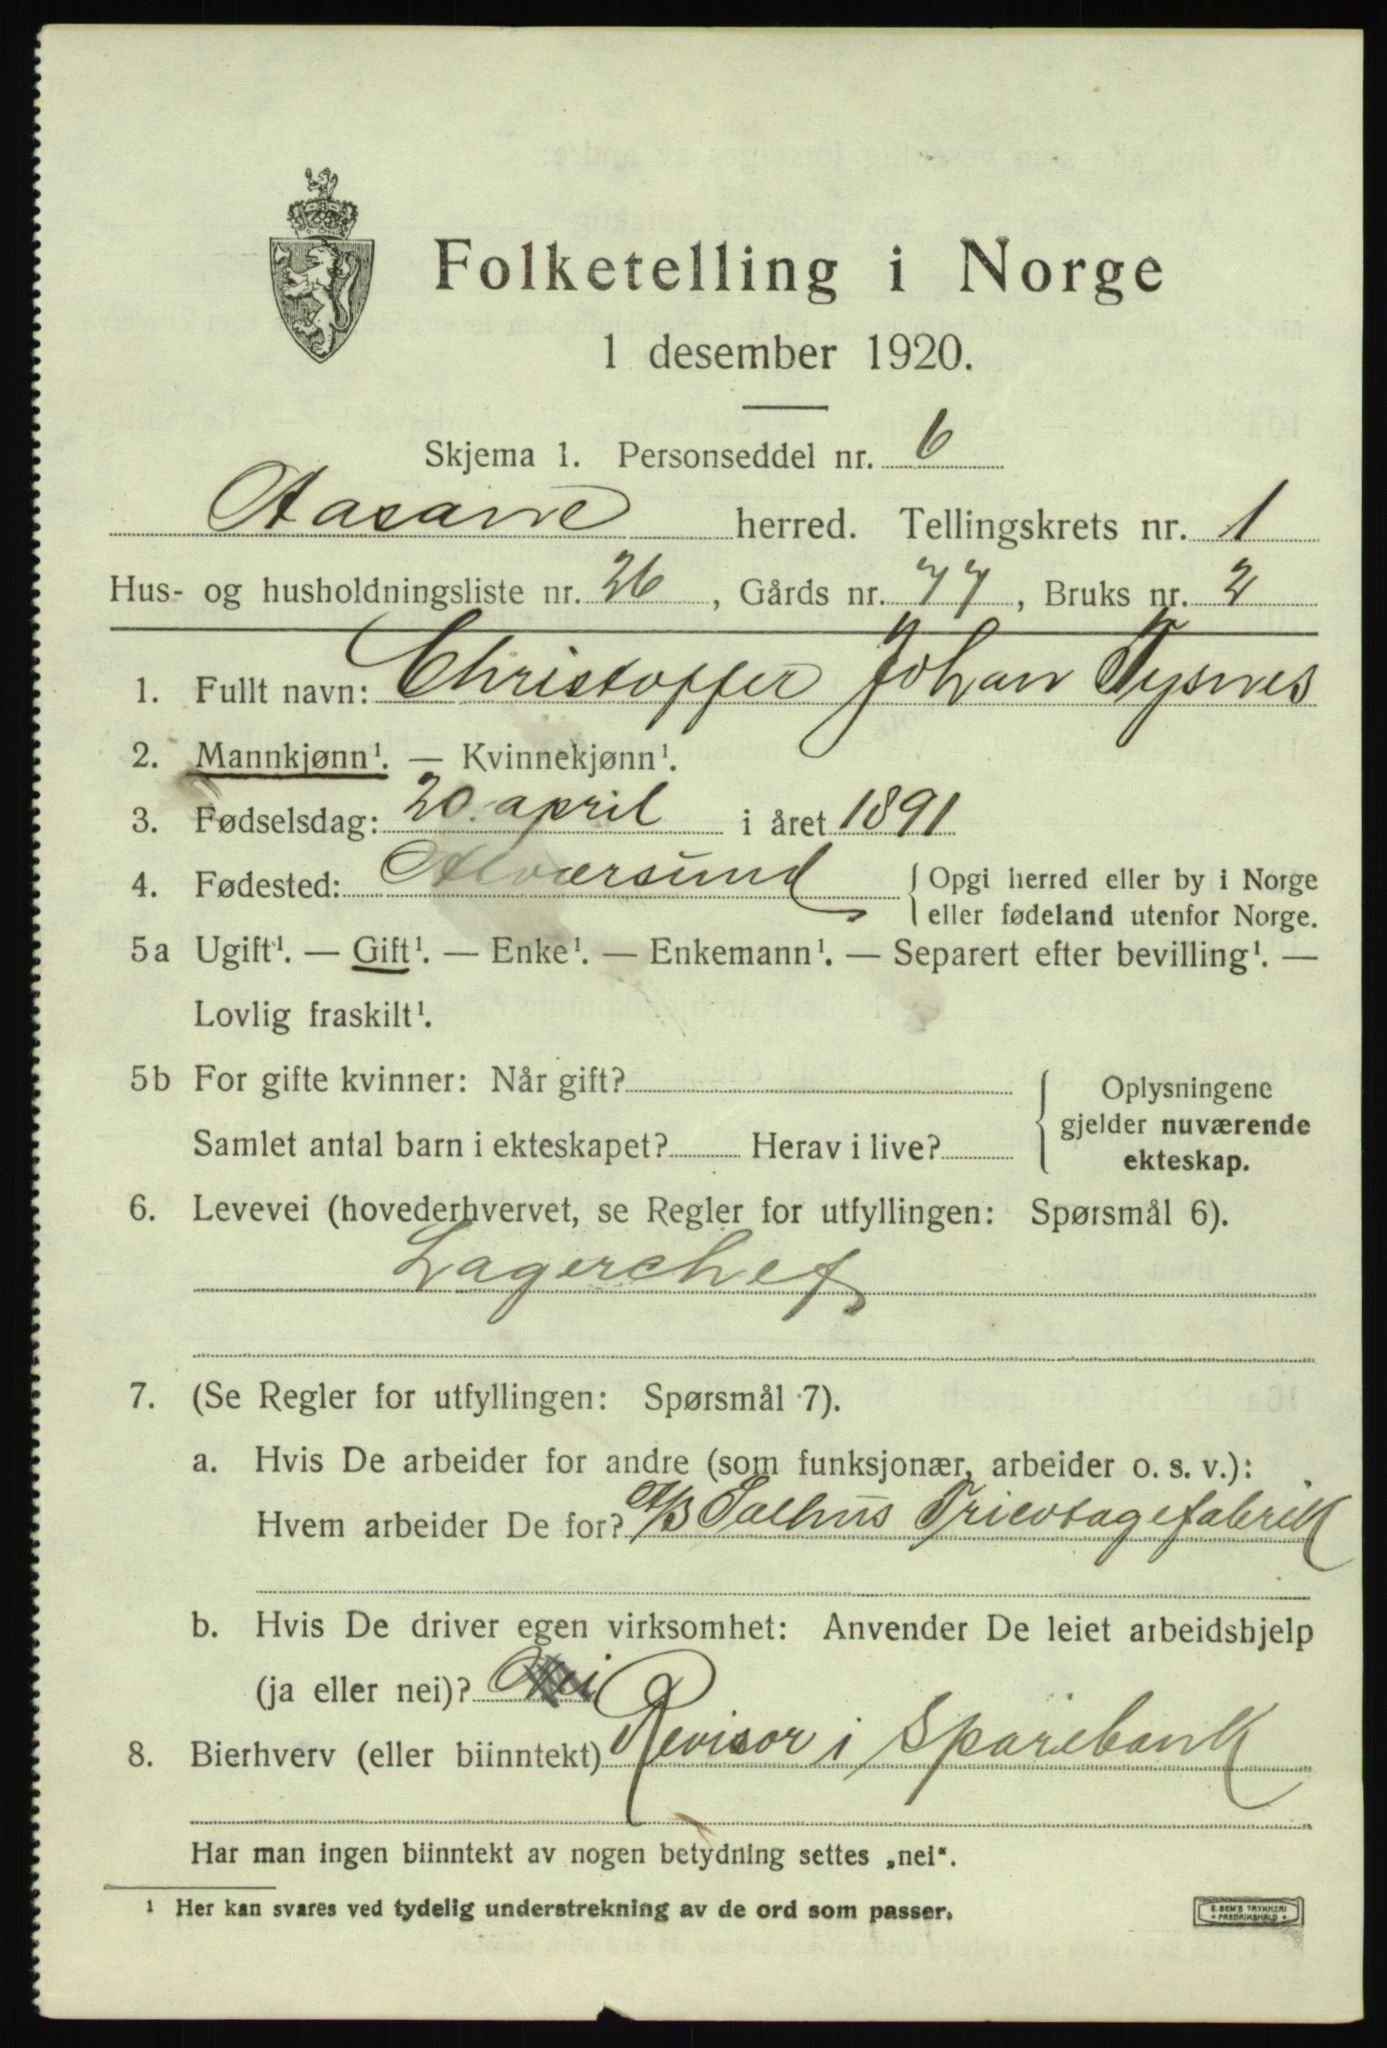 Folketelling i Norge
1 desember 1920.
Skjema 1. Personseddel nr. 6
Aasane herred. Tellingskrets nr. 1
Hus- og husholdningsliste nr. 26, Gårds nr. 77, Bruks nr. 2
1. Fullt navn: Christoffer Johan Tysnes
2. Mannkjønn¹. — Kvinnekjønn¹.
3. Fødselsdag: 20. april i året 1891
4. Fødested: Alværsund { Opgi herred eller by i Norge
eller fødeland utenfor Norge.
5a Ugift¹. — Gift¹. — Enke¹. — Enkemann¹. — Separert efter bevilling¹. —
Lovlig fraskilt¹.
5b For gifte kvinner: Når gift?
Samlet antal barn i ekteskapet? Herav i live?
Oplysningene
gjelder nuværende
ekteskap.
6. Levevei (hovederhvervet, se Regler for utfyllingen: Spørsmål 6).
Lagerchef
7. (Se Regler for utfyllingen: Spørsmål 7).
a. Hvis De arbeider for andre (som funksjonær, arbeider o. s. v.):
Hvem arbeider De for? A/B Salhus Tricotagefabrik
b. Hvis De driver egen virksomhet: Anvender De leiet arbeidshjelp
(ja eller nei)? Nei
8. Bierhverv (eller biinntekt) Revisor i Sparebank
Har man ingen biinntekt av nogen betydning settes „nei“.
¹ Her kan svares ved tydelig understrekning av de ord som passer.
E. SEM'S TRYKKERI
FREDRIKSHALD